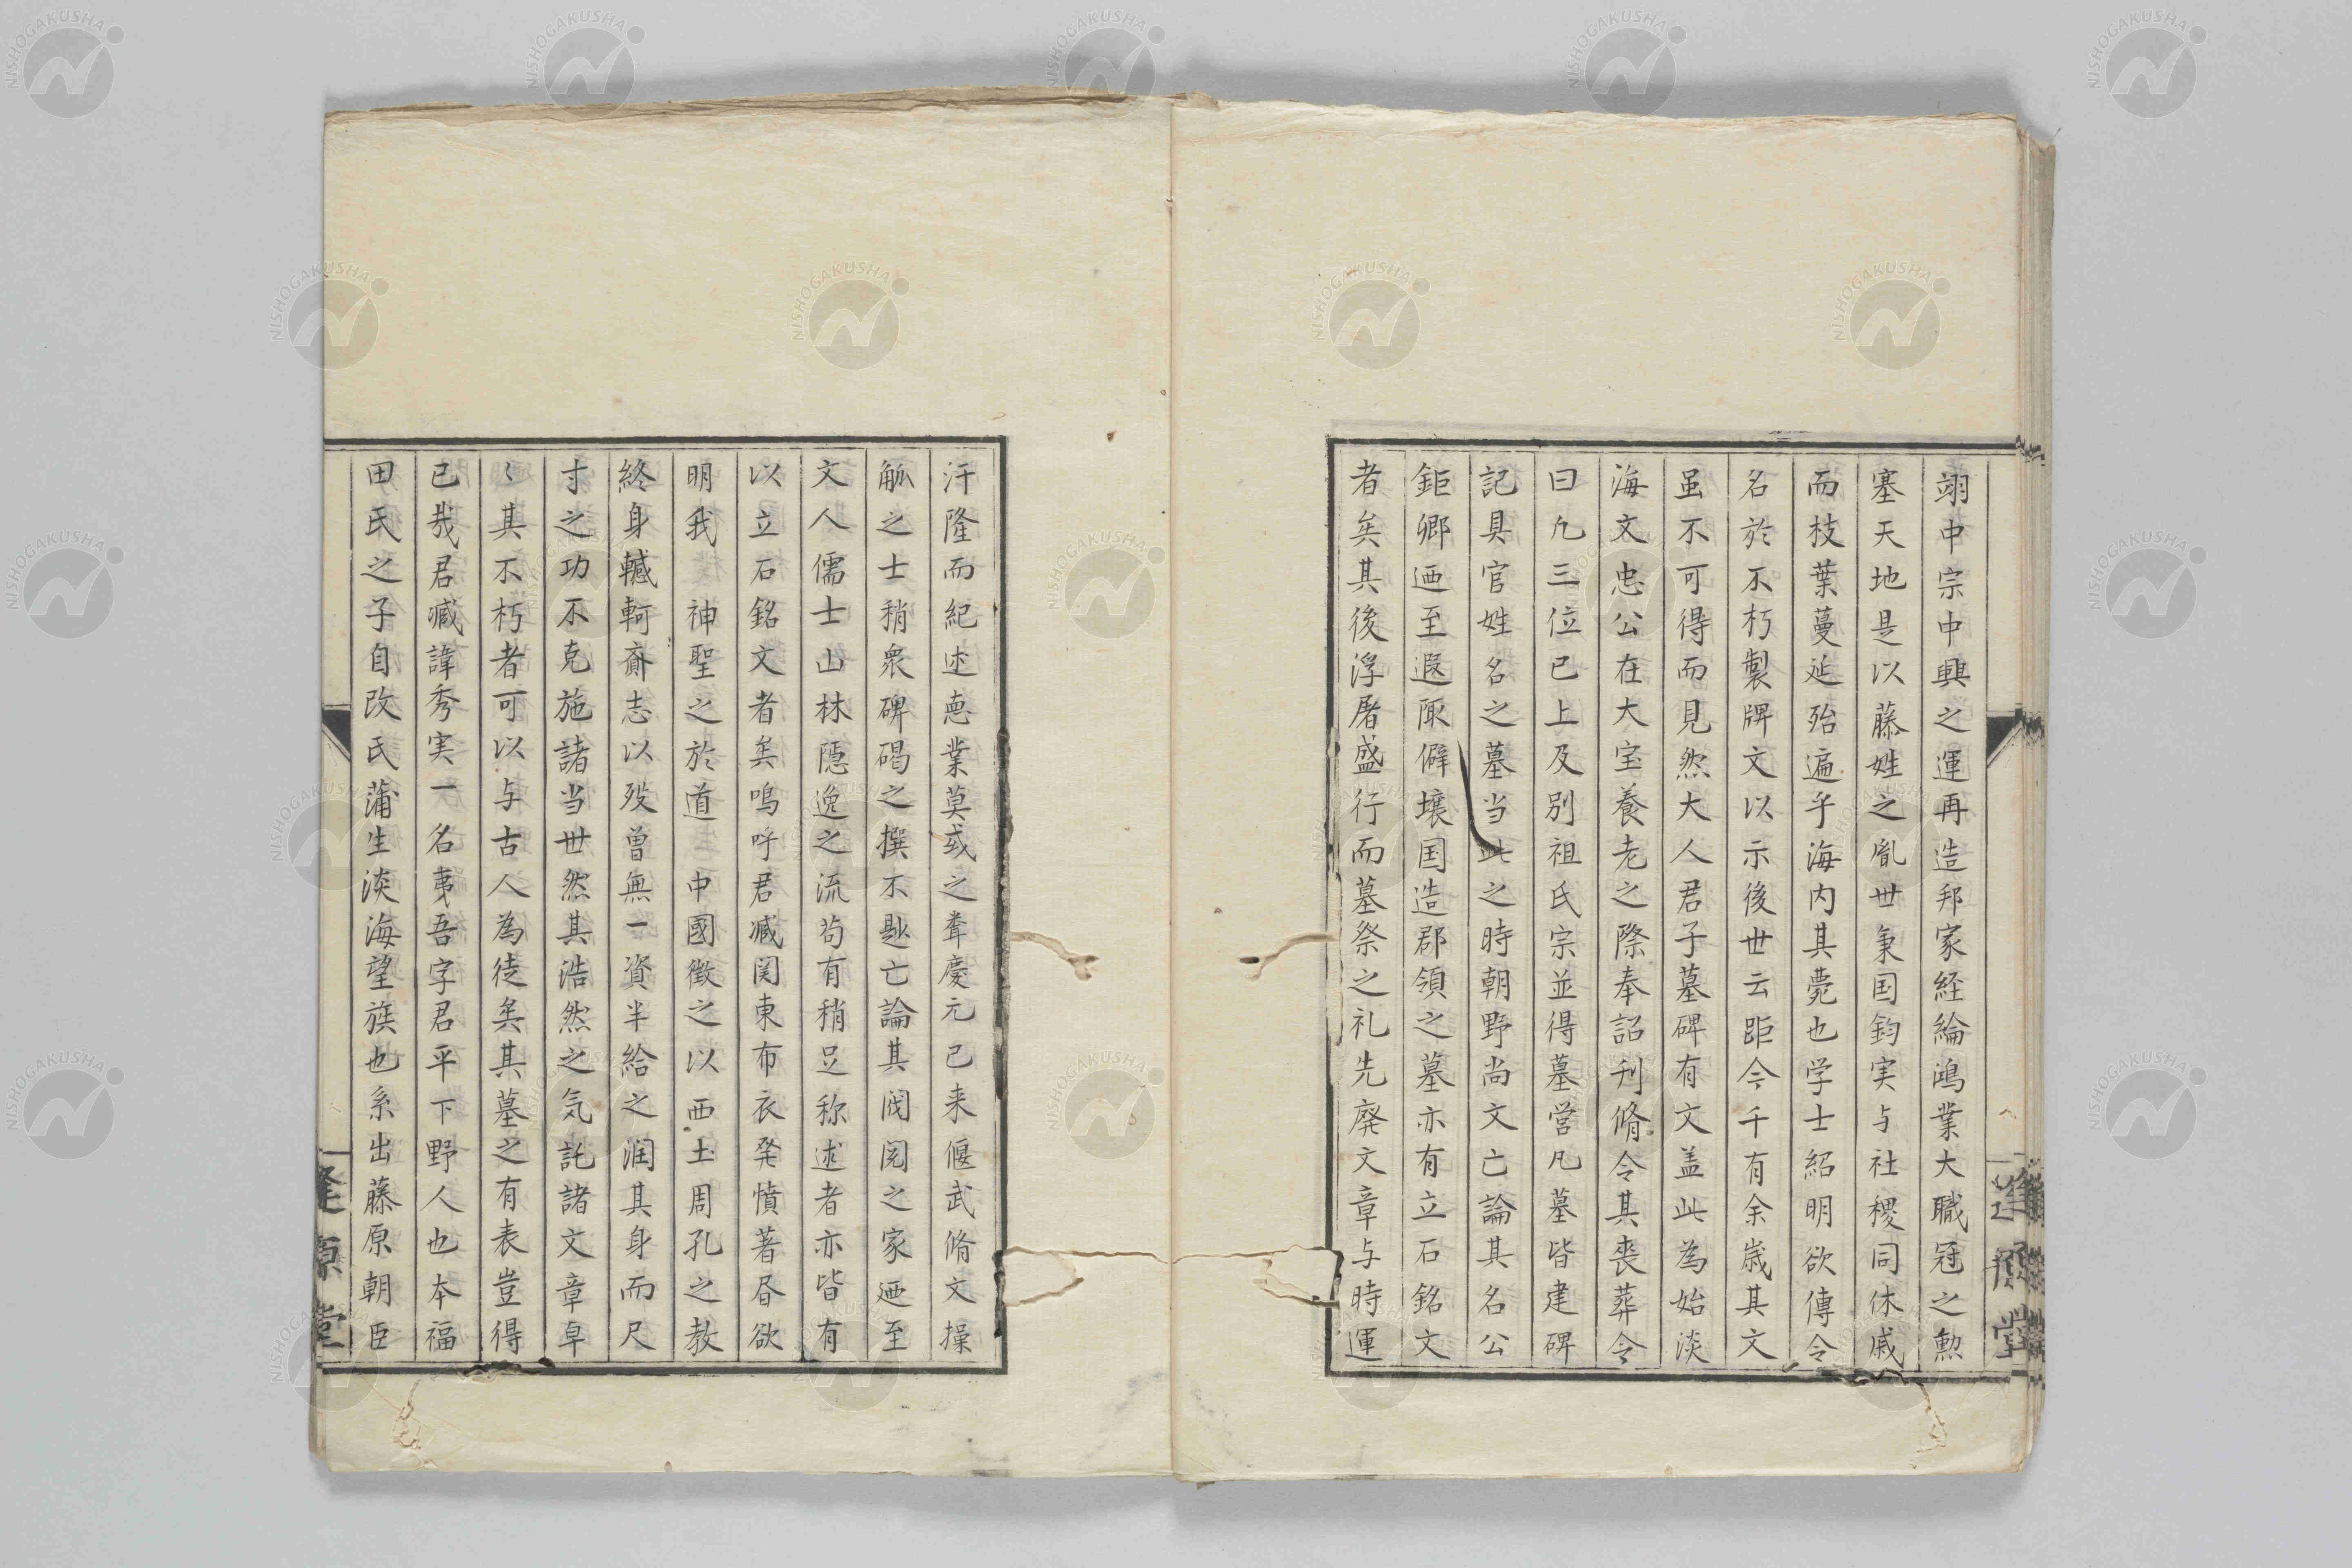 翊中宗中興之運再造邦家経綸鴻業大職冠之勲
塞天地是以藤姓之胤世秉国鈞実与社稷同休戚
而枝葉蔓延殆遍乎海内其薨也学士紹明欲傳令
名於不朽製牌文以示後世云距今千有余歳其文
虽不可得而見然大人君子墓碑有文盖此為始淡
海文忠公在大宝養老之際奉詔刊脩令其喪葬令
曰凡三位已上及別祖氏宗並得墓営凡墓皆建碑
記具官姓名之墓当此之時朝野尚文亡論其名公
鉅郷迺至遐陬僻壌国造郡領之墓亦有立石銘文
者矣其後浮屠盛行而墓祭之礼先廃文章与時運
汙隆而紀述悳業莫或之聿慶元已来偃武脩文操
觚之士稍衆碑碣之撰不尠亡論其閥閲之家迺至
文人儒士山林隠逸之流苟有稍足称述者亦皆有
以立石銘文者矣嗚呼君臧関東布衣発憤著昼欲
明我 神聖之於道 中國徴之以西土周孔之教
終身轗軻齎志以歿曽無一資半給之潤其身而尺
寸之功不克施諸当世然其浩然之気託諸文章卓
〻其不朽者可以与古人為徒矣其墓之有表豈得
已哉君臧諱秀実一名夷吾字君平下野人也本福
田氏之子自改氏蒲生淡海望族也系出藤原朝臣
逢原堂
逢原堂
NISHOGAKUSHA